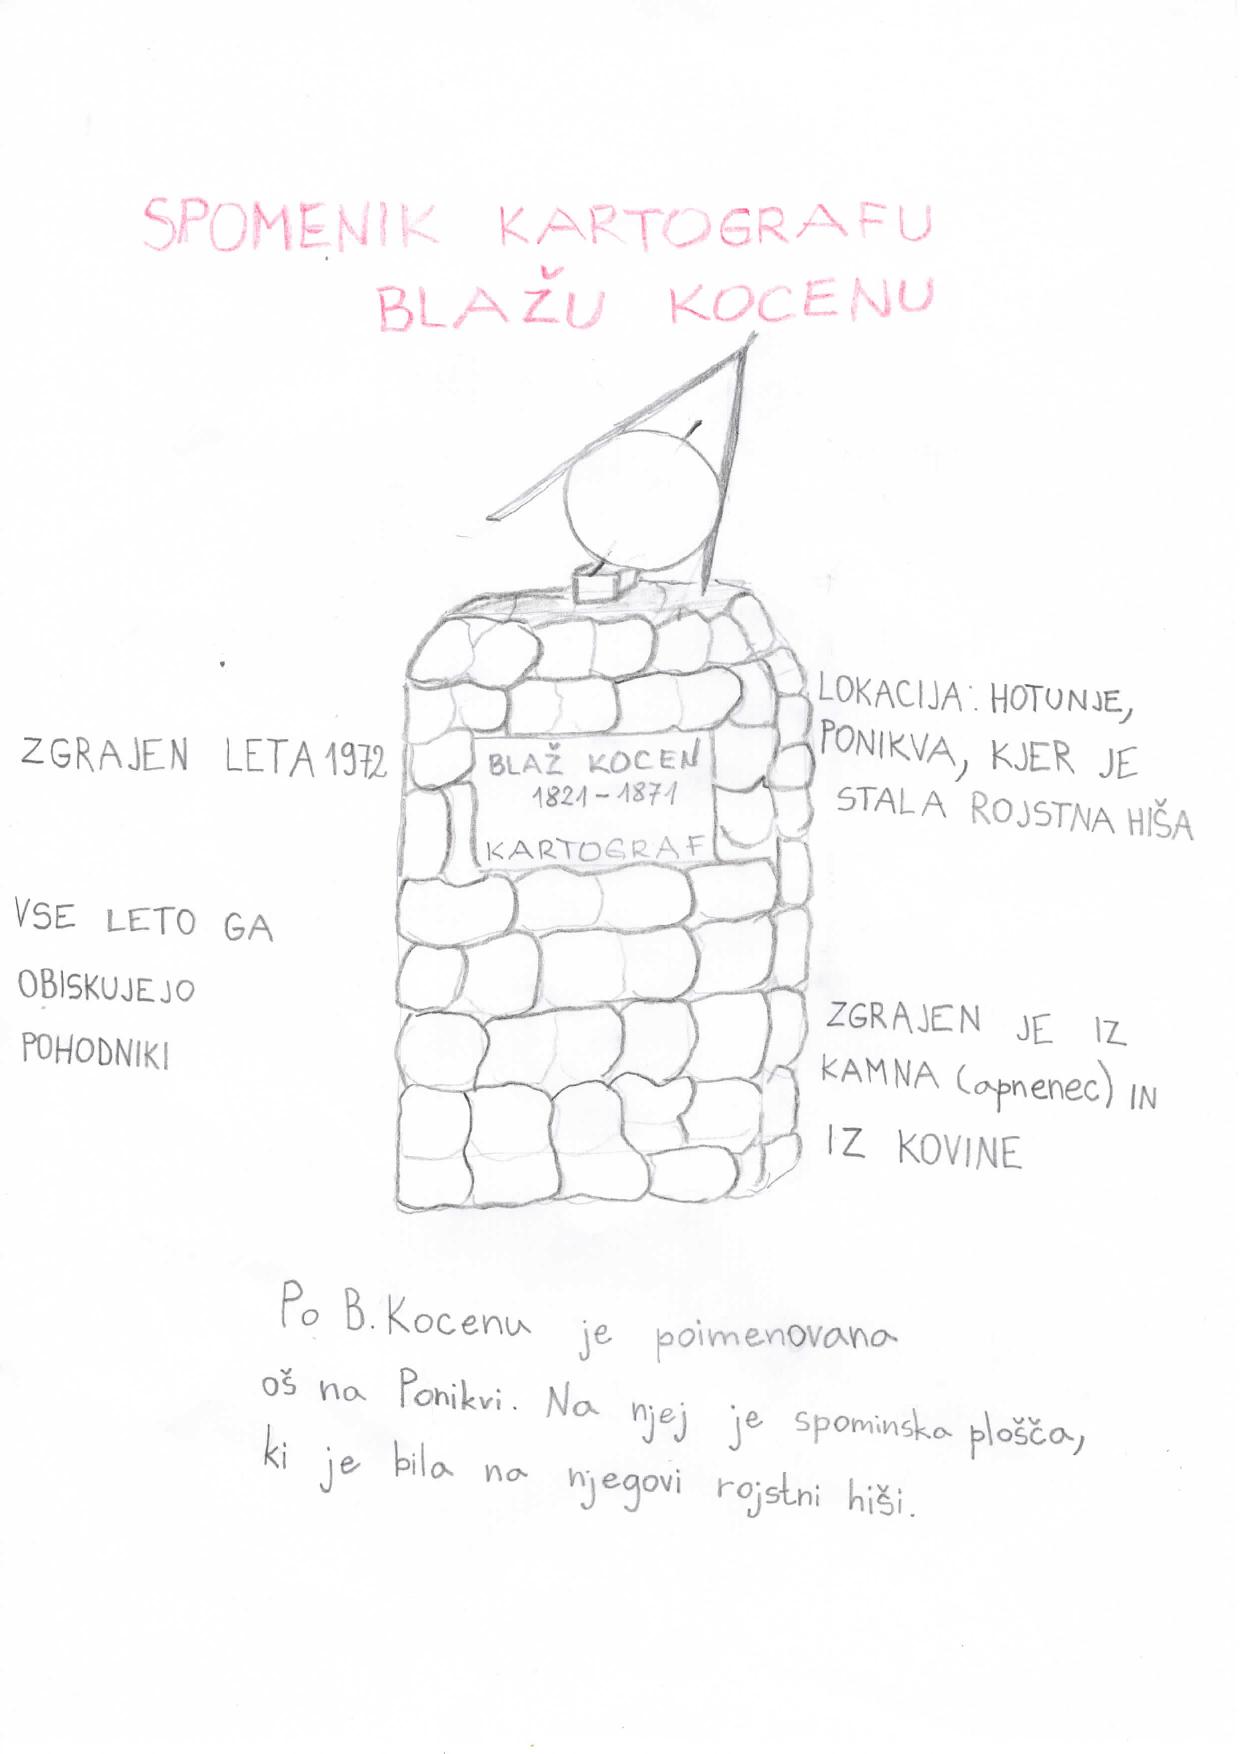 SPOMENIK KARTOGRAFU
BLAŽU KOCENU
ZGRAJEN LETA 1972
VSE LETO GA
OBISKUJEJO
POHODNIKI
BLAŽ KOCEN
1821-1871
KARTOGRAF
LOKACIJA: HOTUNJE,
PONIKVA, KJER JE
STALA ROJSTNA HIŠA
ZGRAJEN JE IZ
KAMNA (apnenec) IN
IZ KOVINE
Po B. Kocenu je poimenovana
oš na Ponikvi. Na njej je spominska plošča,
ki je bila na njegovi rojstni hiši.